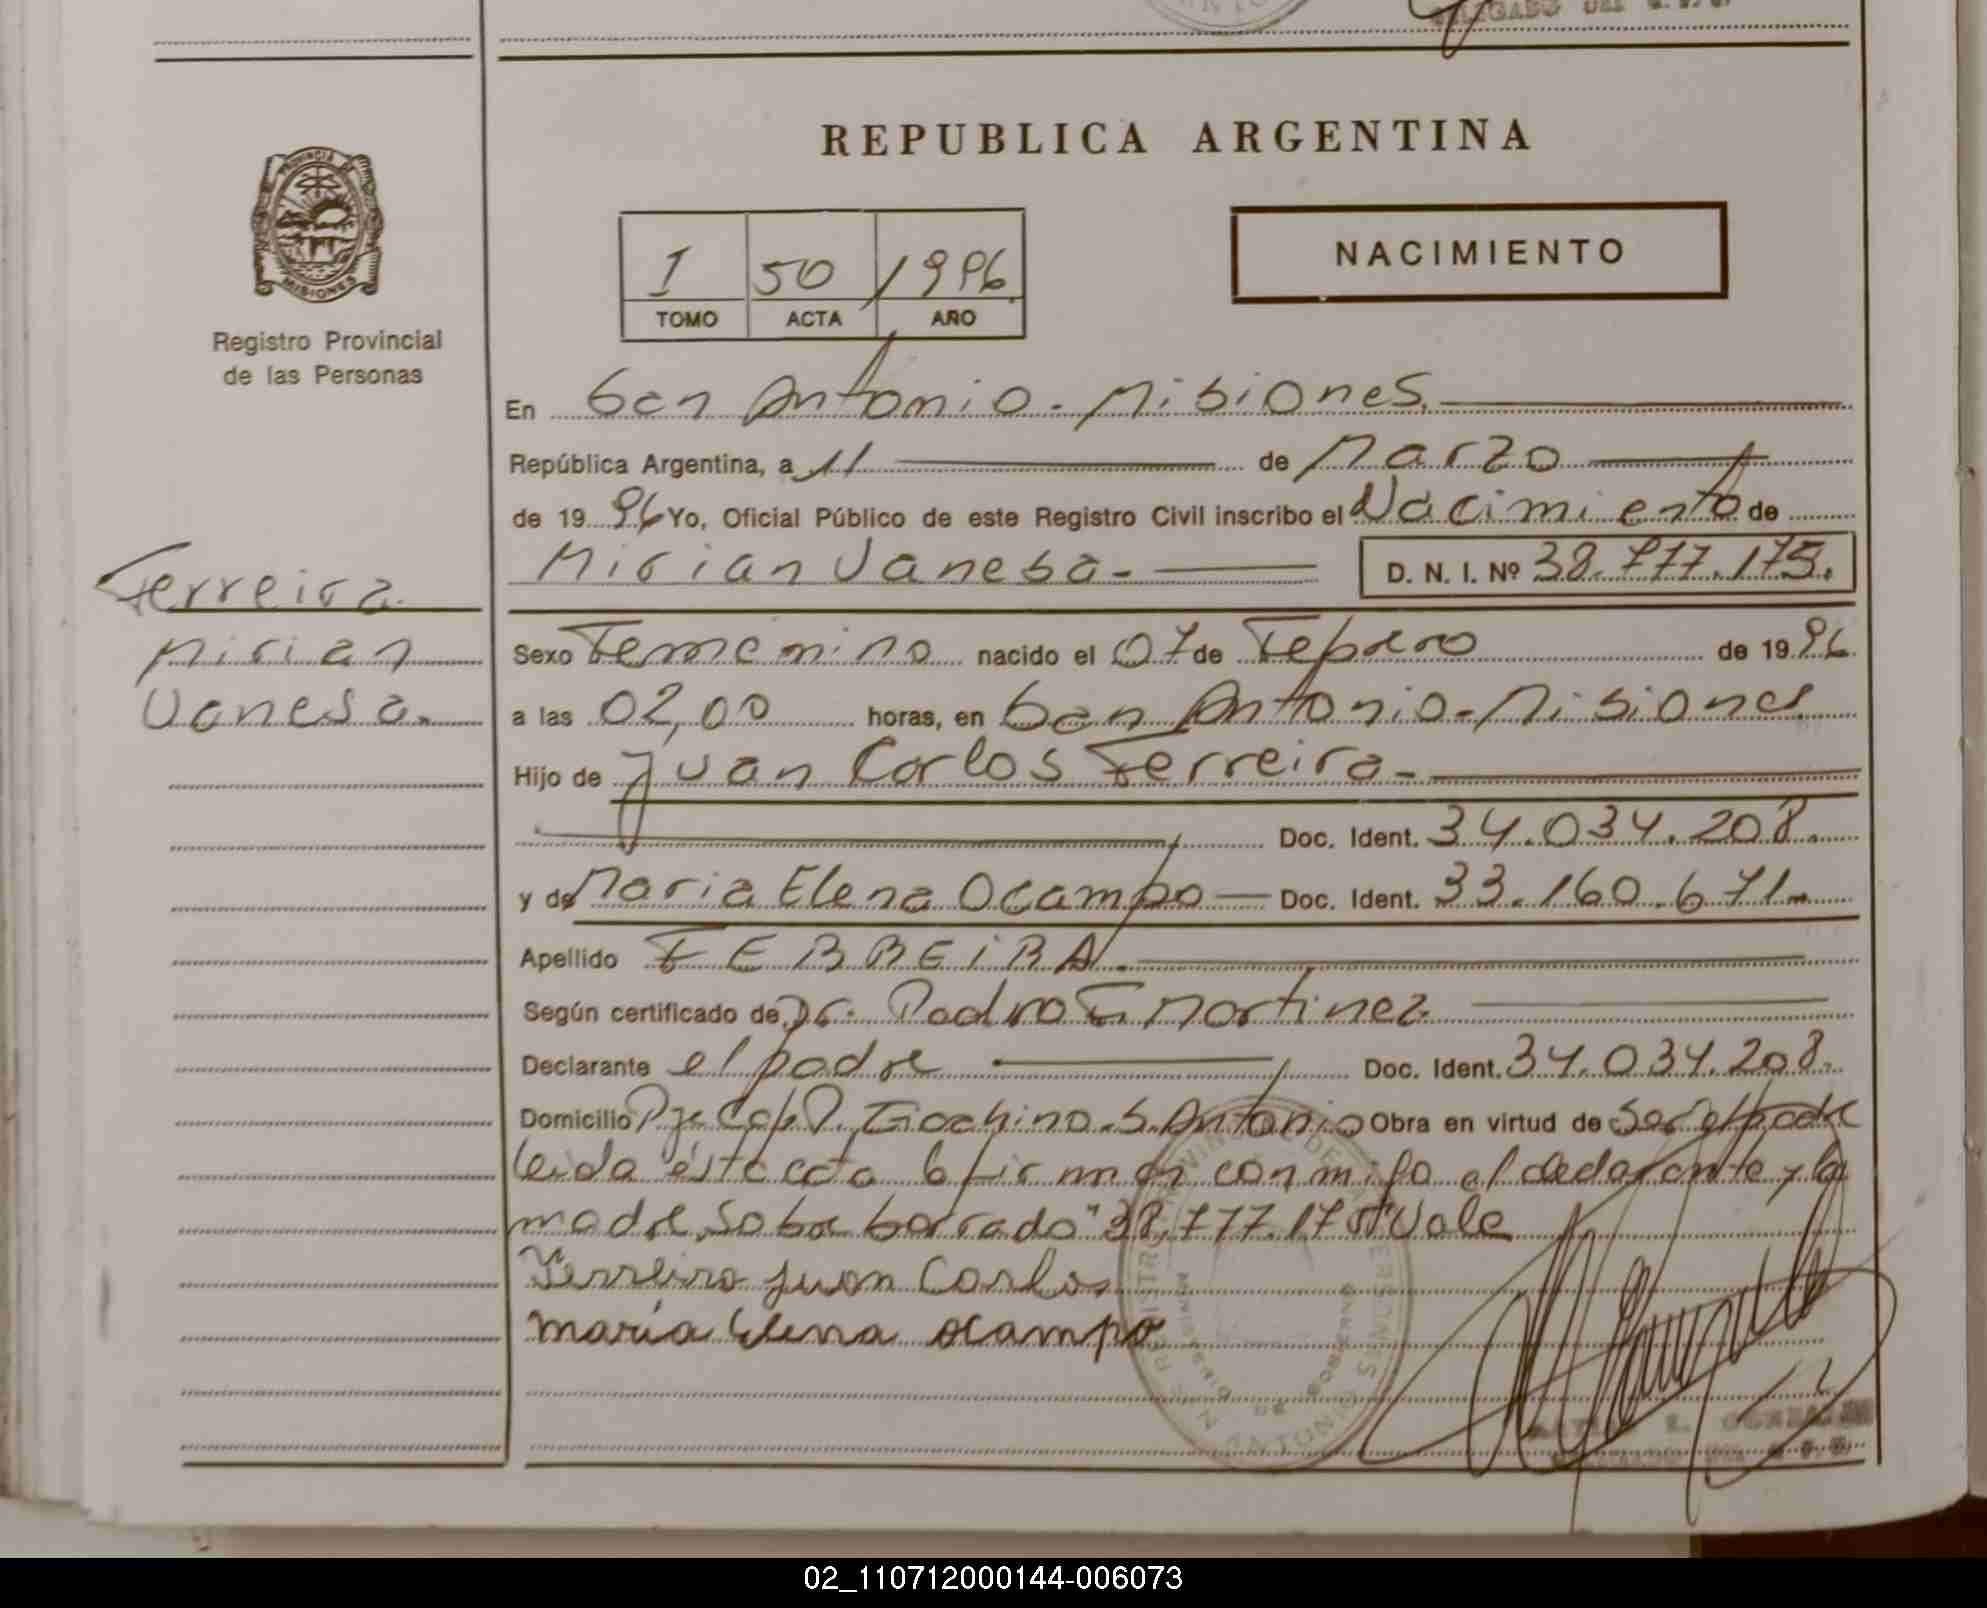 DELEGADO DEL
REPUBLICA ARGENTINA
PROVINCIA DE
MISIONES
NACIMIENTO
I 50 1996
TOMO ACTA AÑO
Registro Provincial
de las Personas
En San Antonio - Misiones.
República Argentina, a 11 de Marzo
de 19 96 Yo, Oficial Público de este Registro Civil inscribo el Nacimiento de
Mirian Vanesa - D. N. I. Nº 38.777.175.
Ferreira
Mirian
Vanesa.
Sexo Femenino nacido el 07 de Febrero de 19 96
a las 02,00 horas, en San Antonio - Misiones
Hijo de Juan Carlos Ferreira -
Doc. Ident. 34.034.208.
y de Maria Elena Ocampo — Doc. Ident. 33.160.671.
Apellido FERREIRA.
Según certificado de Dr. Pedro E Martinez
Declarante el padre Doc. Ident. 34.034.208.
Domicilio Pje Cap P. Giachino - S. Antonio Obra en virtud de Ser el padre
leida ésta acta firman conmigo el declarante y la
madre, Sobre borrado "38.777.175" Vale
Ferreira Juan Carlos
maría Elena ocampo
02_110712000144-006073